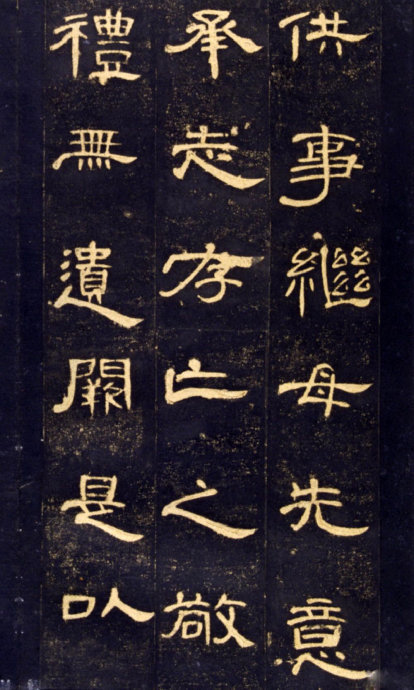 供事繼母先意
承志存亡之敬
禮無遺闕是以